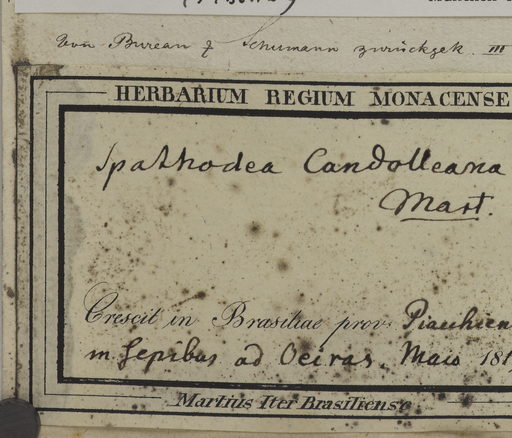 Von Bureau & Schumann zurückgek. III
HERBARIUM REGIUM MONACENSE
Spathodea Candolleana
Mart.
Crescit in Brasiliae prov. Piauhien
in sepibus ad Oeiras. Maio 181
Martius Iter Brasiliense